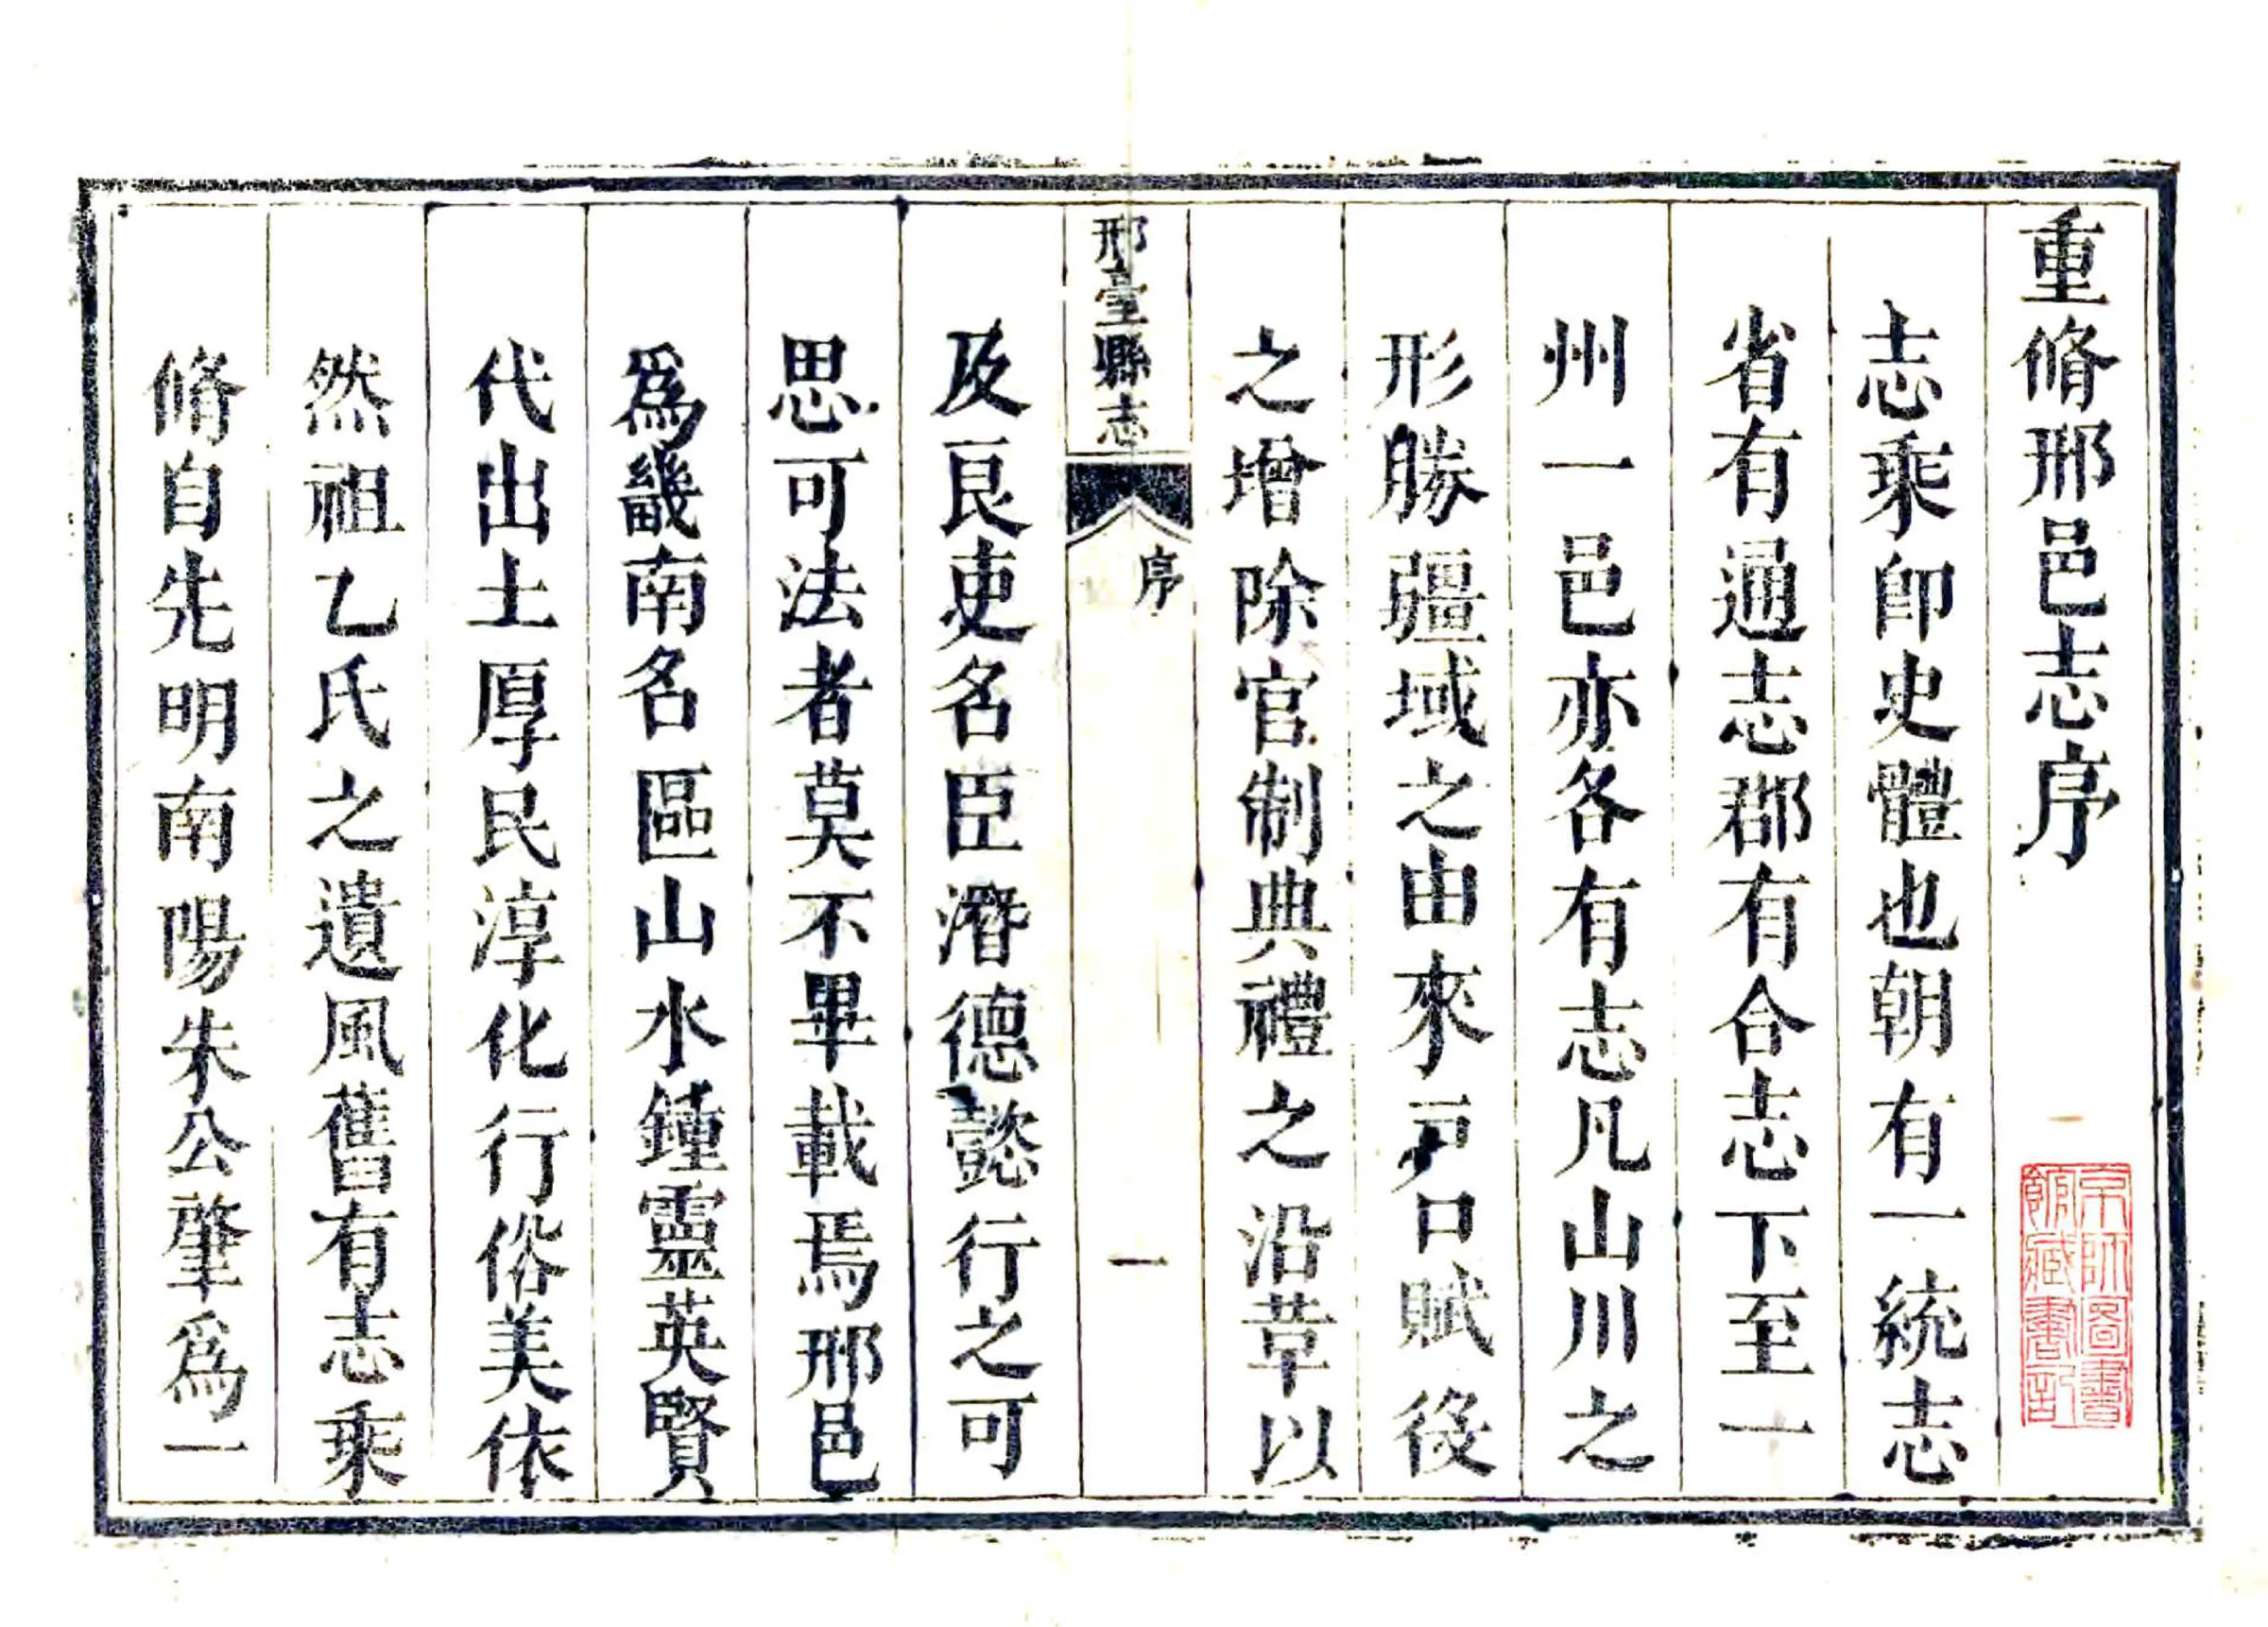 重脩邢邑志序
志乘卽史體也朝有一統志
省有通志郡有合志下至一
州一邑亦各有志凡山川之
形勝疆域之由來戸口賦役
之增除官制典禮之沿革以
邢臺縣志
序
一
及良吏名臣潛德懿行之可
思可法者莫不畢載焉邢邑
爲畿南名區山水鍾靈英賢
代出土厚民淳化行俗美依
然祖乙氏之遺風舊有志乘
脩自先明南陽朱公肇爲一
京師圖書
館藏書記